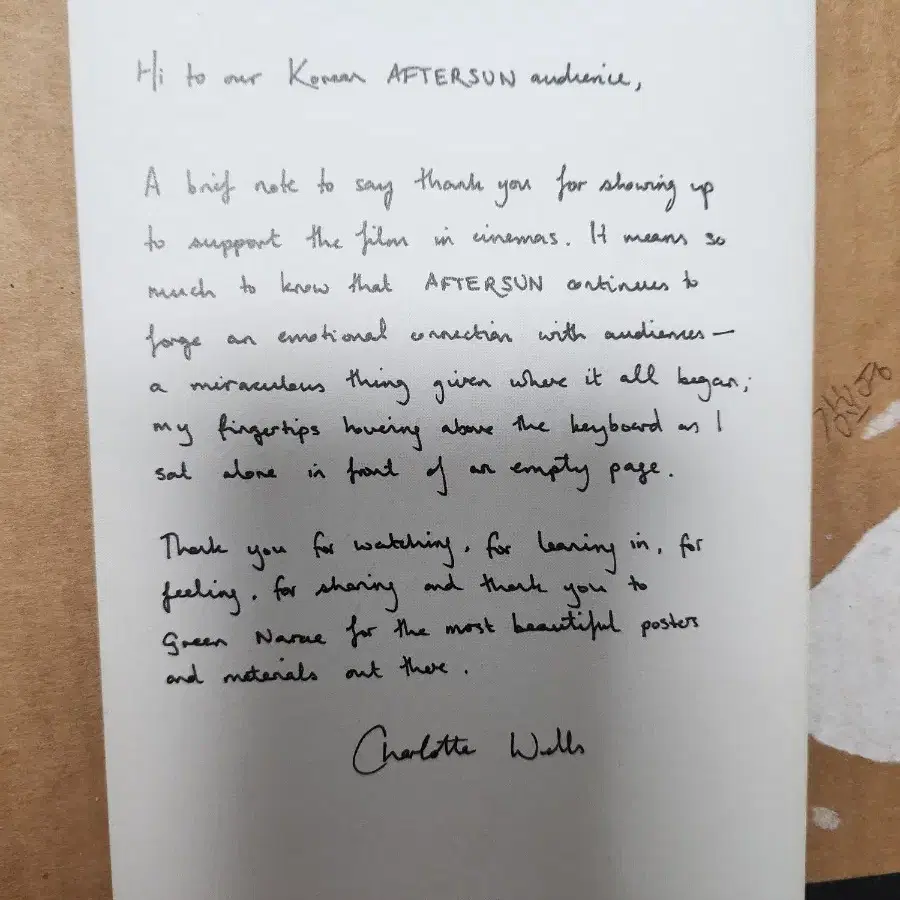 Hi to our Korean AFTERSUN audience,
A brief note to say thank you for showing up
to support the film in cinemas. It means so
much to know that AFTERSUN continues to
forge an emotional connection with audiences—
a miraculous thing given where it all began;
my fingertips hovering above the keyboard as I
sat alone in front of an empty page.
Thank you for watching, for leaning in, for
feeling, for sharing and thank you to
Green Narae for the most beautiful posters
and materials out there.
Charlotte Wells